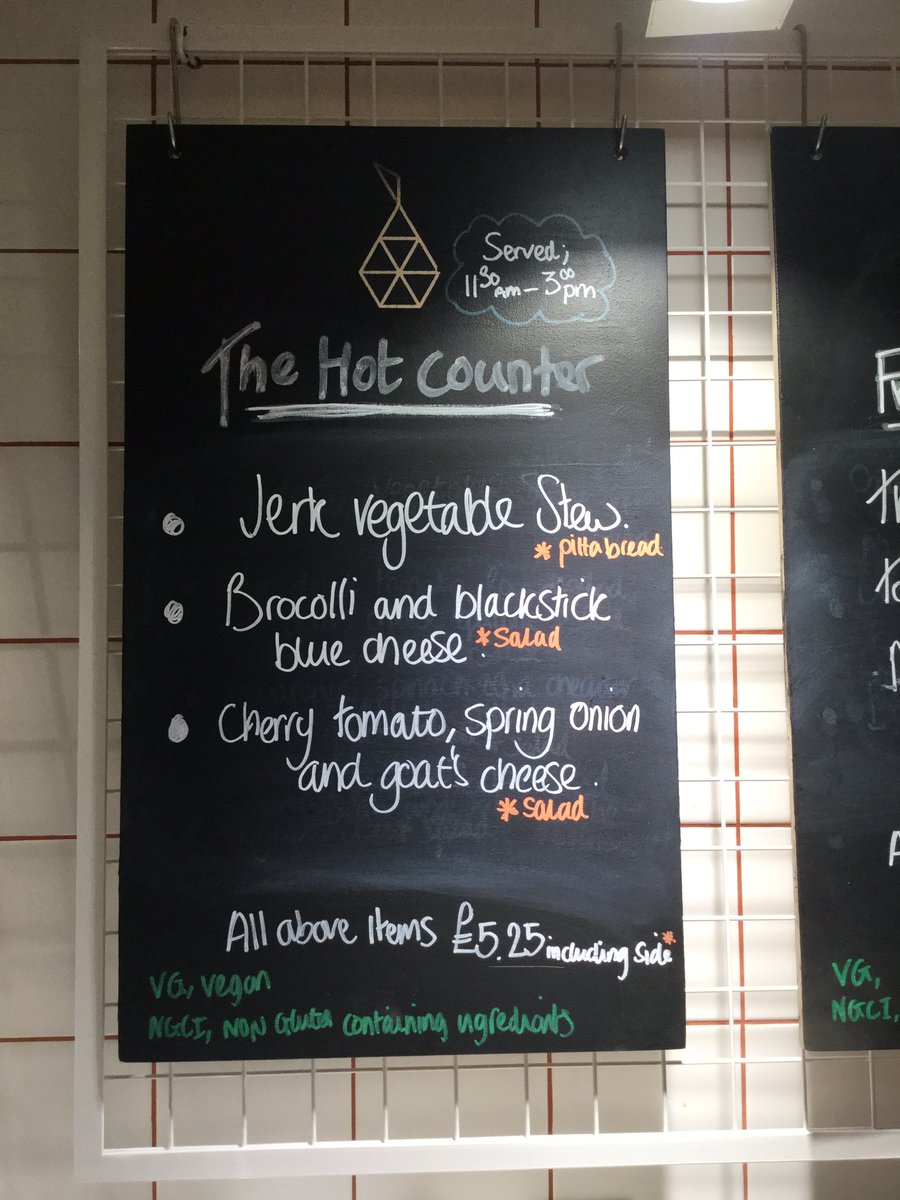 Served;
11 30 AM - 3 00 pm
The Hot Counter
Jerk vegetable Stew.
* pitta bread
Brocolli and blackstick
blue cheese. * Salad
Cherry tomato, spring onion
and goat's cheese.
* Salad
All above Items £5.25 including side*
VG, vegan
NGCI, NON Gluten containing ingredients
VG,
NGCI,